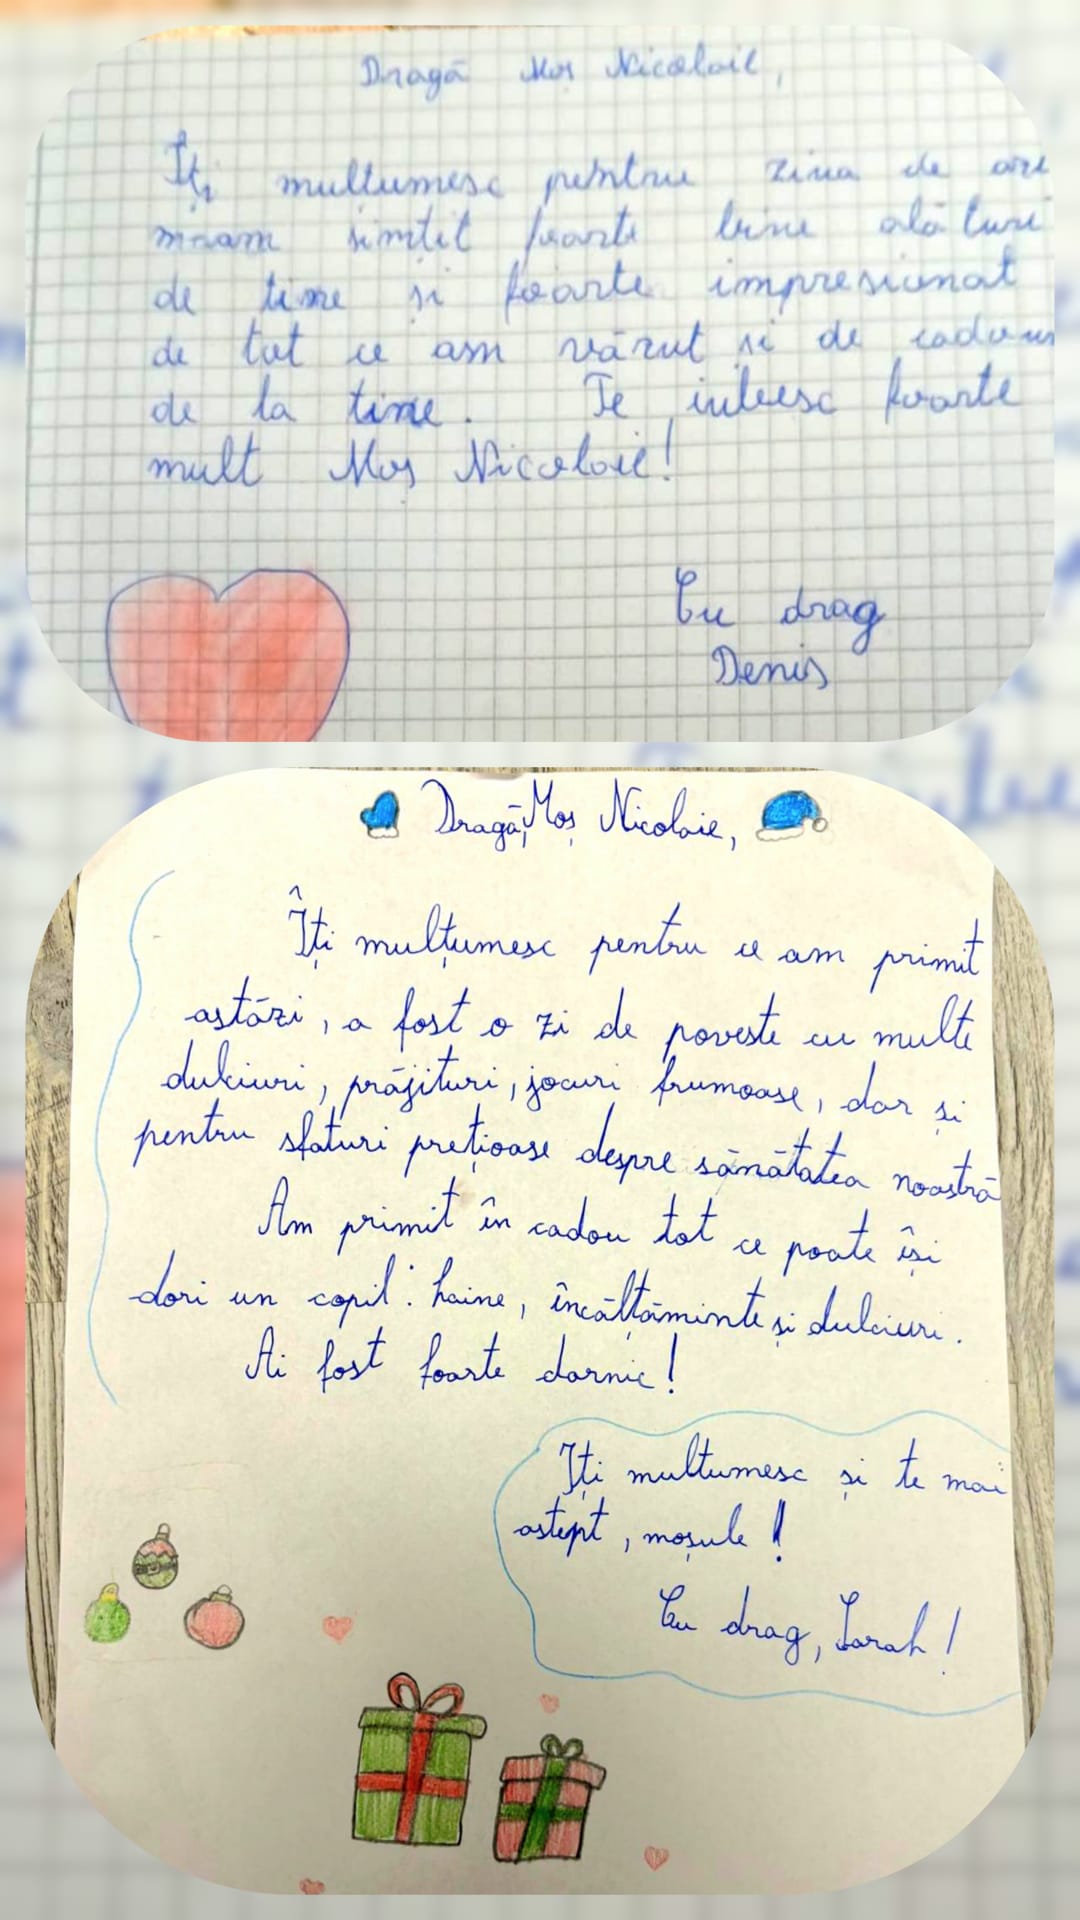 Dragă Moș Nicolaie,
Îți mulțumesc pentru ziua de
m-am simțit foarte bine alături
de tine și foarte impresionat
de tot ce am văzut și de
de la tine. Te iubesc foarte
mult Moș Nicolaie!
Cu drag
Denis
Dragă, Moș Nicolaie,
Îți mulțumesc pentru ce am primit
astăzi, a fost o zi de poveste cu multe
dulciuri, prăjituri, jocuri frumoase, dar și
pentru sfaturi prețioase despre sănătatea noastră
Am primit în cadou tot ce poate își
dori un copil: haine, încălțăminte și dulciuri.
Ai fost foarte darnic!
Iți multumesc și te mai
astept, moșule!
Cu drag, Sarah!